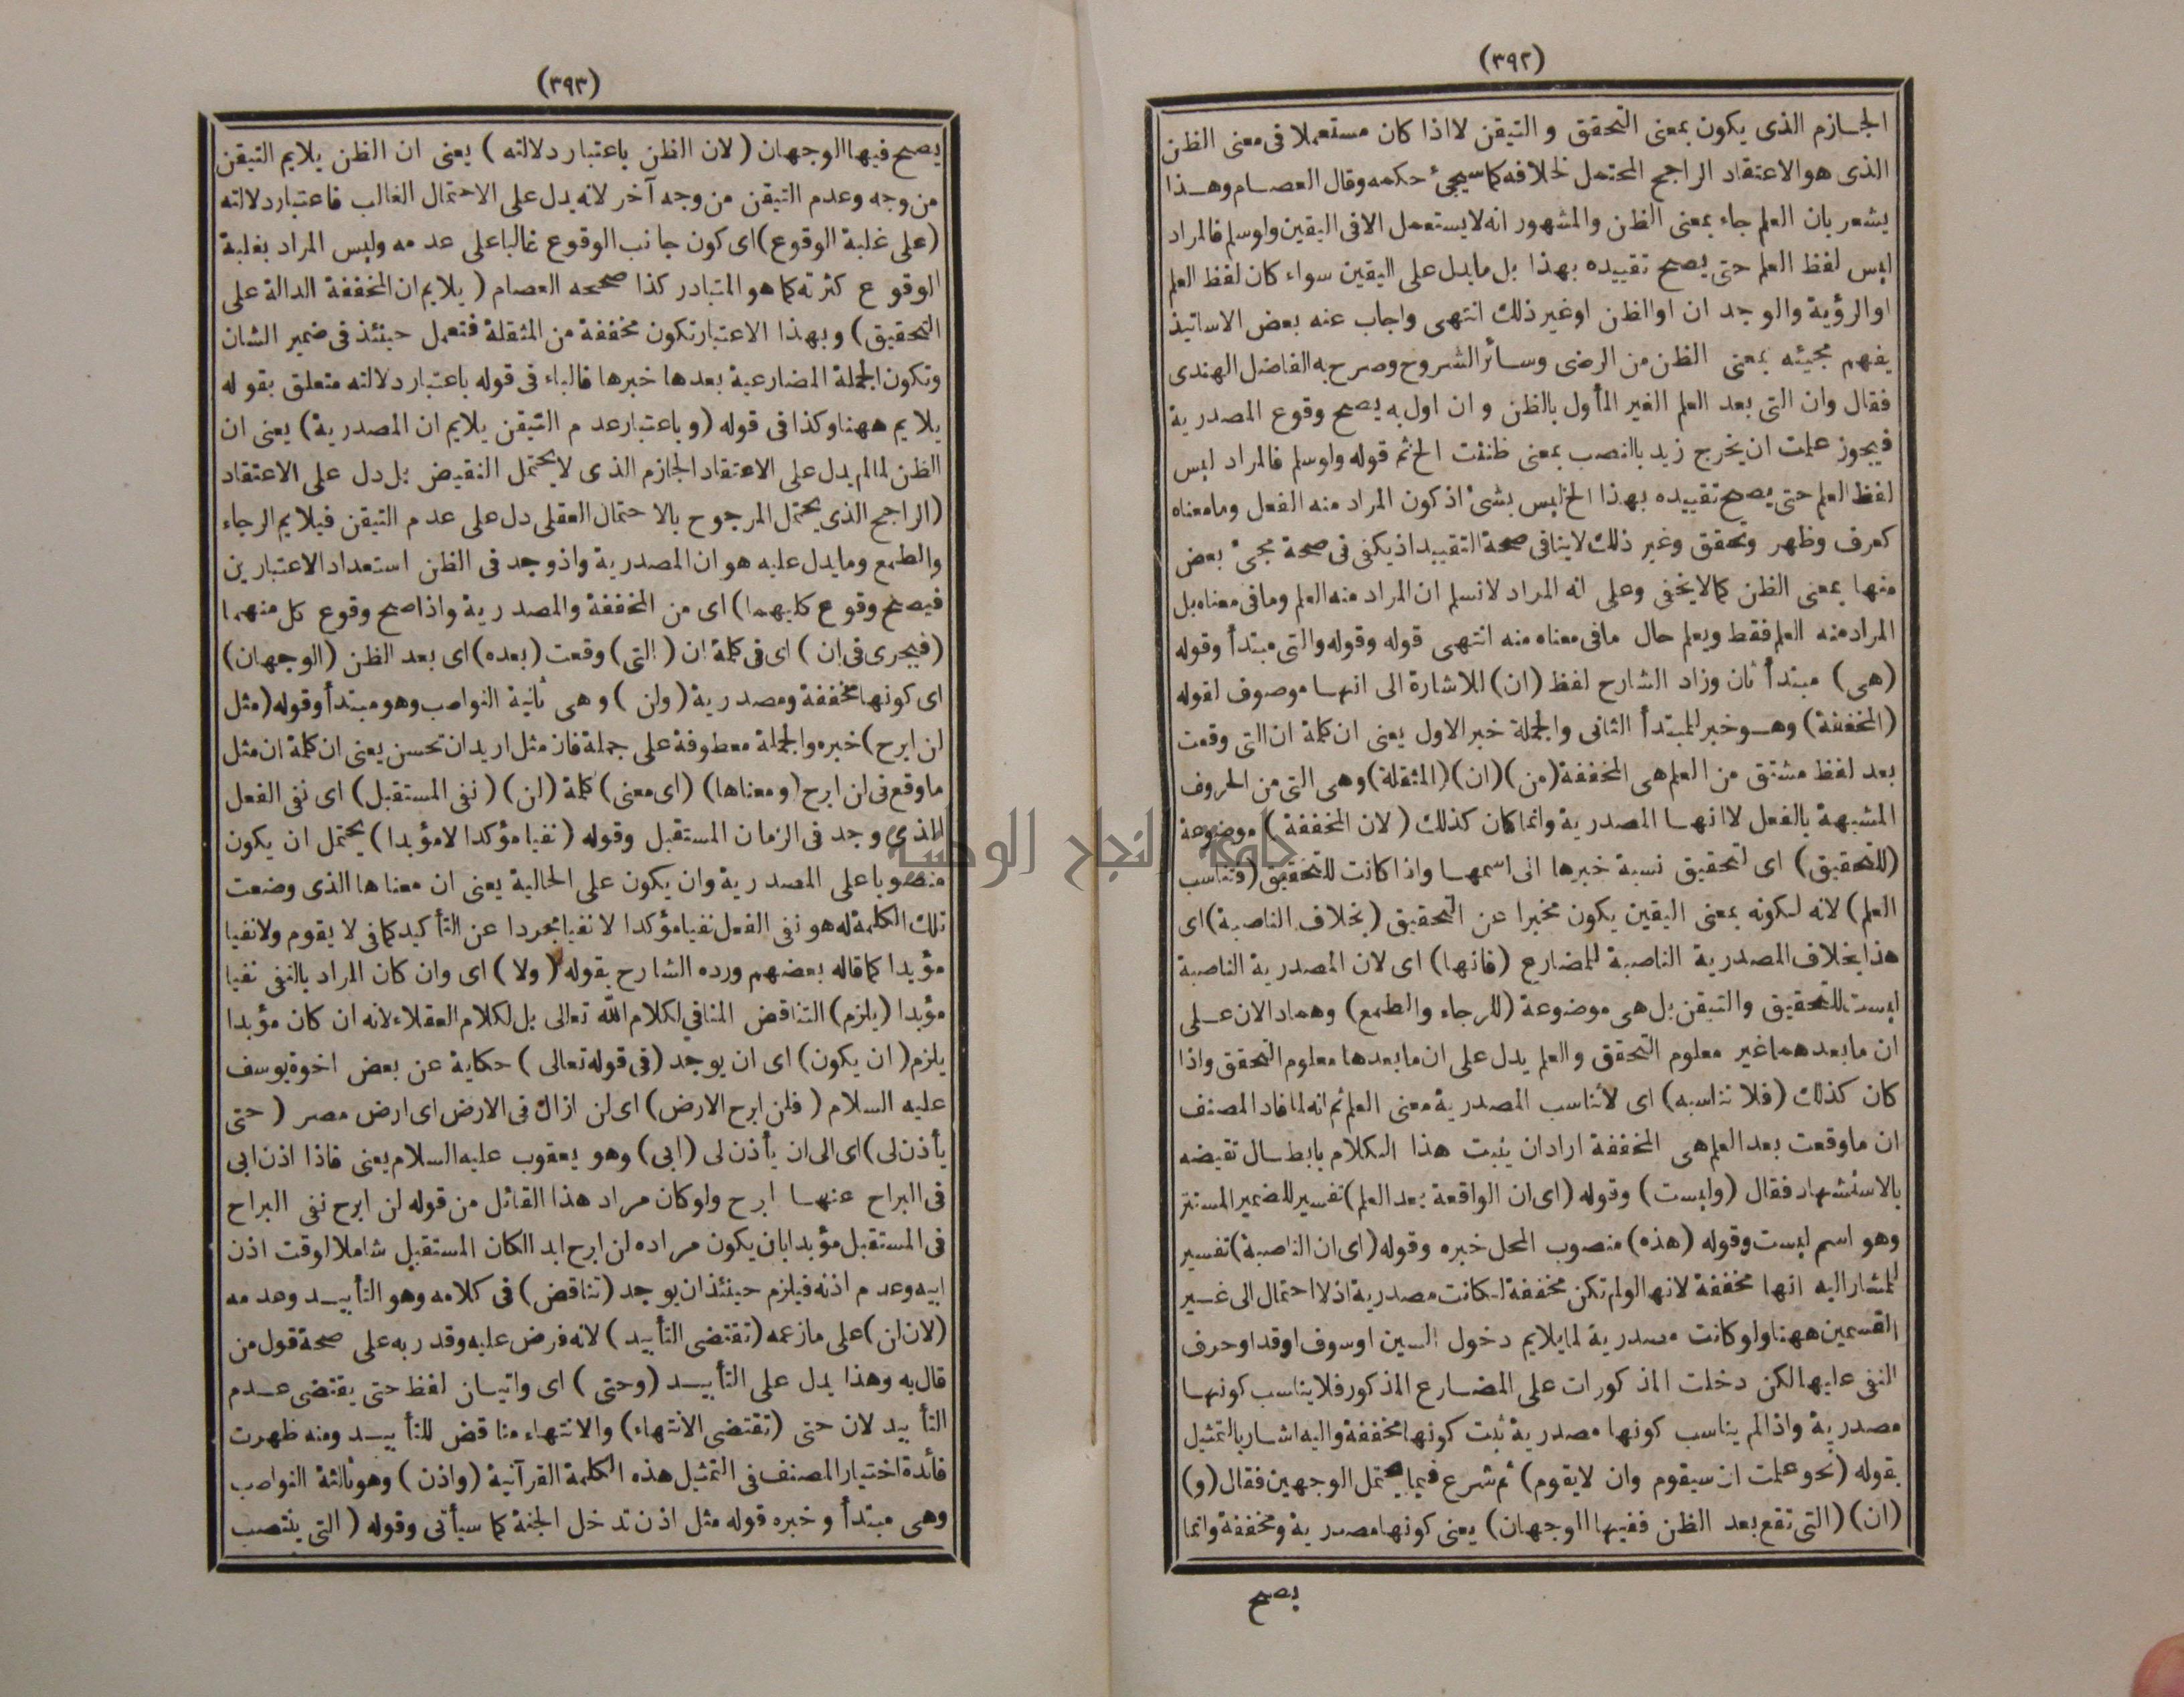 (٣٩٢)
الجازم الذى يكون بمعنى التحقق و التيقن لا اذا كان مستعملا فى معنى الظن
الذى هو الاعتقاد الراجح المحتمل لخلافه كما سيجئ حكمه وقال العصام وهذا
يشعر بان العلم جاء بمعنى الظن والمشهور انه لا يستعمل الا فى اليقين ولوسلم فالمراد
ليس لفظ العلم حتى يصح تقييده بهذا بل مايدل على اليقين سواء كان لفظ العلم
او الرؤية والوجد ان اوالظن اوغير ذلك انتهى واجاب عنه بعض الاساتيذ
يفهم مجيئه بمعنى الظن من الرضى وسائر الشروح وصرح به الفاضل الهندى
فقال وان التى بعد العلم الغير المأول بالظن و ان اول به يصح وقوع المصدرية
فيجوز علمت ان يخرج زيد بالنصب بمعنى ظننت الخ ثم قوله ولوسلم فالمراد ليس
لفظ العلم حتى يصح تقييده بهذا الخ ليس بشئ اذ كون المراد منه الفعل ومامعناه
كعرف وظهر وتحقق وغير ذلك لاينافى صحة التقييد اذ يكفى فى صحة مجئ بعض
منها بمعنى الظن كمالايخفى وعلى انه المراد لانسلم ان المراد منه العلم ومافى معناه بل
المراد منه العلم فقط ويعلم حال مافى معناه منه انتهى قوله وقوله والتى مبتدأ وقوله
(هى) مبتدأ ثان وزاد الشارح لفظ (ان) للاشارة الى انها موصوف لقوله
(المخففة) وهو خبر للمبتدأ الثانى والجملة خبر الاول يعنى ان كلمة ان التى وقعت
بعد لفظ مشتق من العلم هى المخففة (من) (ان) (المثقلة) وهى التى من الحروف
المشبهة بالفعل لا انها المصدرية وانما كان كذلك (لان المخففة) موضوعة
(للتحقيق) اى لتحقيق نسبة خبرها الى اسمها واذا كانت للتحقيق (فتناسب
العلم) لانه لكونه بمعنى اليقين يكون مخبرا عن التحقيق (بخلاف الناصبة) اى
هذا بخلاف المصدرية الناصبة للمضارع (فانها) اى لان المصدرية الناصبة
ليست للتحقيق والتيقن بل هى موضوعة (للرجاء والطمع) وهما دالان على
ان مابعدهما غير معلوم التحقق والعلم يدل على ان مابعدها معلوم التحقق واذا
كان كذلك (فلا تناسبه) اى لاتناسب المصدرية معنى العلم ثم انه لما فاد المصنف
ان ماوقعت بعد العلم هى المخففة ارادان يثبت هذا الكلام بابطال نقيضه
بالاستشهاد فقال (وليست) وقوله (اى ان الواقعة بعد العلم) تفسير للضمير المستتر
وهو اسم ليست وقوله (هذه) منصوب المحل خبره وقوله (اى ان الناصبة) تفسير
للمشار اليه انها مخففة لانها لولم تكن مخففة لكانت مصدرية اذ لا احتمال الى غير
القسمين ههنا ولو كانت مصدرية لما يلايم دخول السين اوسوف اوقد اوحرف
النفى عليها لكن دخلت المذكورات على المضارع المذكور فلا يناسب كونها
مصدرية واذا لم يناسب كونها مصدرية ثبت كونها مخففة واليه اشار بالتمثيل
بقوله (نحو علمت ان سيقوم وان لايقوم) ثم شرع فيما يحتمل الوجهين فقال (و)
(ان) (التى تقع بعد الظن ففيها الوجهان) يعنى كونها مصدرية ومخففة وانما
يصح
(٣٩٣)
يصح فيها الوجهان (لان الظن باعتبار دلالته) يعنى ان الظن يلايم التيقن
من وجه وعدم التيقن من وجه آخر لانه يدل على الاحتمال الغالب فاعتبار دلالته
(على غلبة الوقوع) اى كون جانب الوقوع غالبا على عدمه وليس المراد بغلبة
الوقوع كثرته كما هو المتبادر كذا صححه العصام (يلايم ان المخففة الدالة على
التحقيق) وبهذا الاعتبار تكون مخففة من المثقلة فتعمل حينئذ فى ضمير الشان
وتكون الجملة المضارعية بعدها خبرها فالباء فى قوله باعتبار دلالته متعلق بقوله
يلايم ههنا وكذا فى قوله (و باعتبار عدم التيقن يلايم ان المصدرية) يعنى ان
الظن لمالم يدل على الاعتقاد الجازم الذى لا يحتمل النقيض بل دل على الاعتقاد
(الراجح الذى يحتمل المرجوح بالاحتمال العقلى دل على عدم التيقن فيلايم الرجاء
والطمع ومايدل عليه هو ان المصدرية واذوجد فى الظن استعداد الاعتبارين
فيصح وقوع كليهما) اى من المخففة والمصدرية واذا صح وقوع كل منهما
(فيجرى فى ان) اى فى كلمة ان (التى) وقعت (بعده) اى بعد الظن (الوجهان)
اى كونها مخففة ومصدرية (ولن) وهى ثانية النواصب وهو مبتدأ وقوله (مثل
لن ابرح) خبره والجملة معطوفة على جملة فان مثل اريدان تحسن يعنى ان كلمة ان مثل
ماوقع فى لن ابرح (ومعناها) (اى معنى) كلمة (لن) (نفى المستقبل) اى نفى الفعل
الذى وجد فى الزمان المستقبل وقوله (نفيا مؤكدا لامؤبدا) يحتمل ان يكون
منصوبا على المصدرية وان يكون على الحالية يعنى ان معناها الذى وضعت
تلك الكلمة له هو نفى الفعل نفيا مؤكدا لا نفيا مجردا عن التأكيد كما فى لا يقوم ولا نفيا
مؤبدا كما قاله بعضهم ورده الشارح بقوله (ولا) اى وان كان المراد بالنفى نفيا
مؤبدا (يلزم) التناقض المنافى لكلام الله تعالى بل لكلام العقلاء لانه ان كان مؤبدا
يلزم (ان يكون) اى ان يوجد (فى قوله تعالى) حكاية عن بعض اخوة يوسف
عليه السلام (فلن ابرح الارض) اى لن ازال فى الارض اى ارض مصر (حتى
يأذن لى) اى الى ان يأذن لى (ابى) وهو يعقوب عليه السلام يعنى فاذا اذن ابى
فى البراح عنها ابرح ولو كان مراد هذا القائل من قوله لن ابرح نفى البراح
فى المستقبل مؤبدا بان يكون مراده لن ابرح ابدا لكان المستقبل شاملا لوقت اذن
ابيه وعدم اذنه فيلزم حينئذ ان يوجد (تناقض) فى كلامه وهو التأبيد وعدمه
(لان لن) على مازعمه (تقتضى التأبيد) لانه فرض عليه وقدر به على صحة قول من
قال به وهذا يدل على التأبيد (وحتى) اى واتيان لفظ حتى يقتضى عدم
التأبيد لان حتى (تقتضى الانتهاء) والانتهاء مناقض للتأبيد ومنه ظهرت
فائدة اختيار المصنف فى التمثيل هذه الكلمة القرآنية (واذن) وهو ثالثة النواصب
وهى مبتدأ و خبره قوله مثل اذن تدخل الجنة كما سيأتى وقوله (التى ينتصب
جامعة النجاح الوطنية